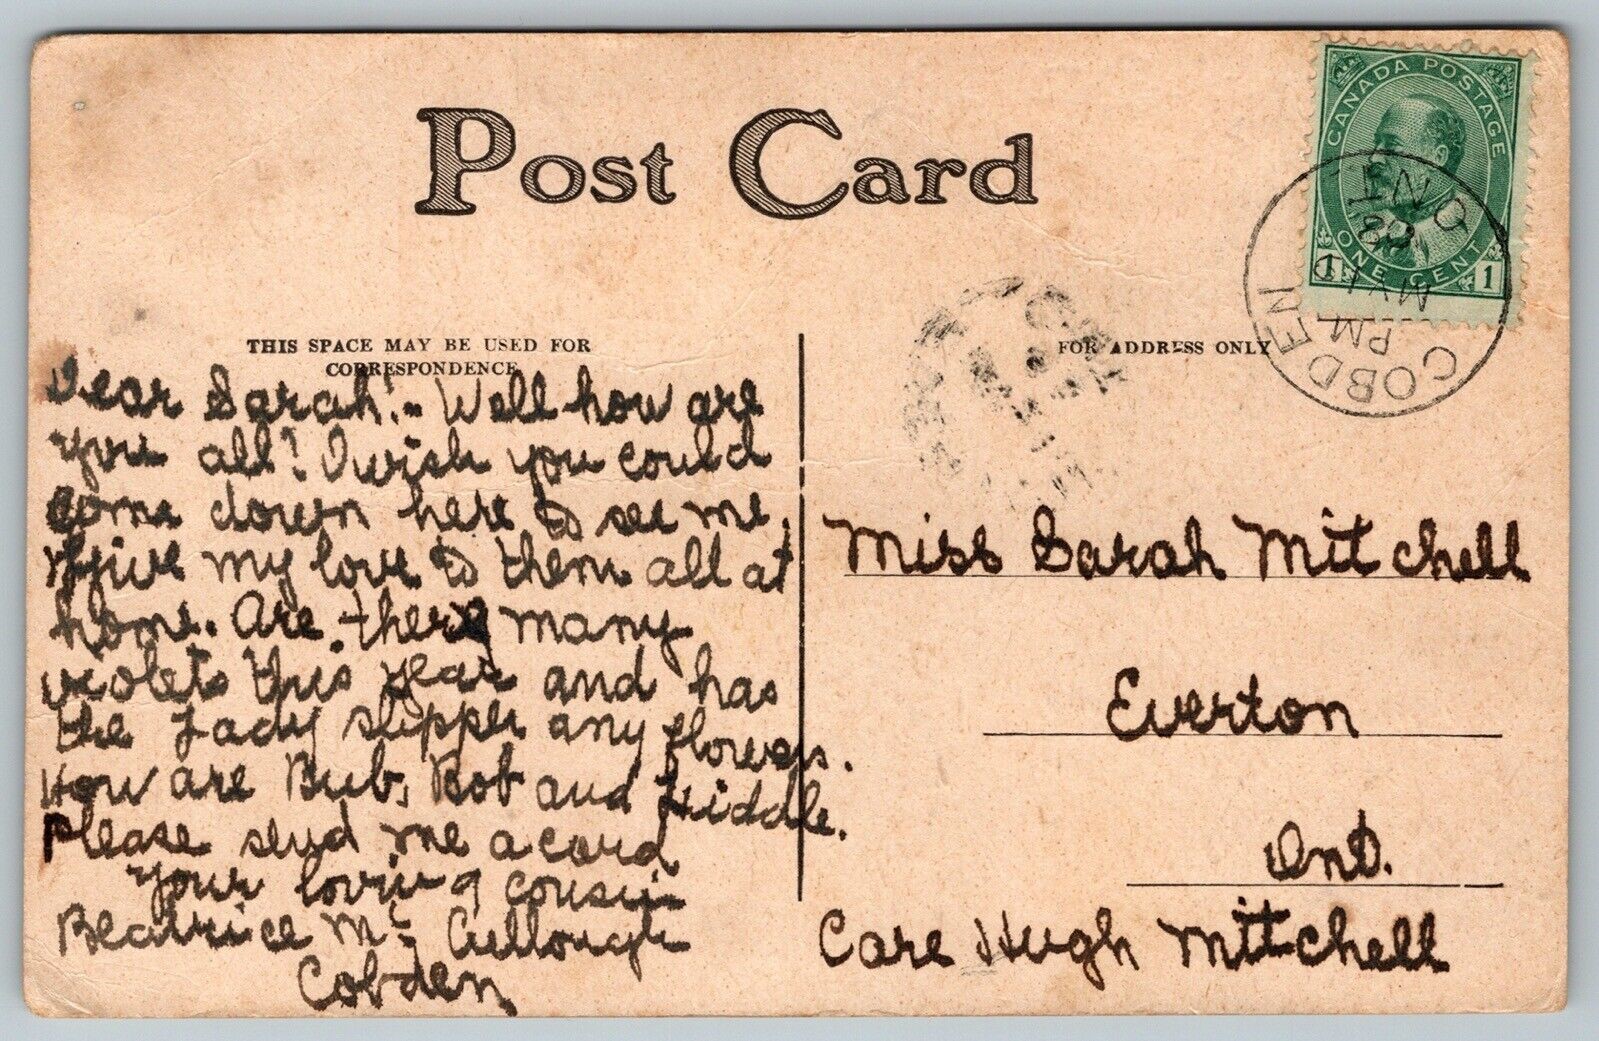 Post Card
CANADA POSTAGE
ONE CENT
1 1
COBDEN ONT
PM
MY 1
THIS SPACE MAY BE USED FOR
CORRESPONDENCE
FOR ADDRESS ONLY
Dear Sarah! - Well how are
you all? I wish you could
come down here to see me.
give my love to them all at
home. Are there many
violets this year and has
the Lady slipper any flowers.
How are Bub, Bob and Hiddle.
Please send me a card
your loving cousin
Beatrice Mc Cullough
Cobden
Miss Sarah Mitchell
Everton
Ont.
Care Hugh Mitchell